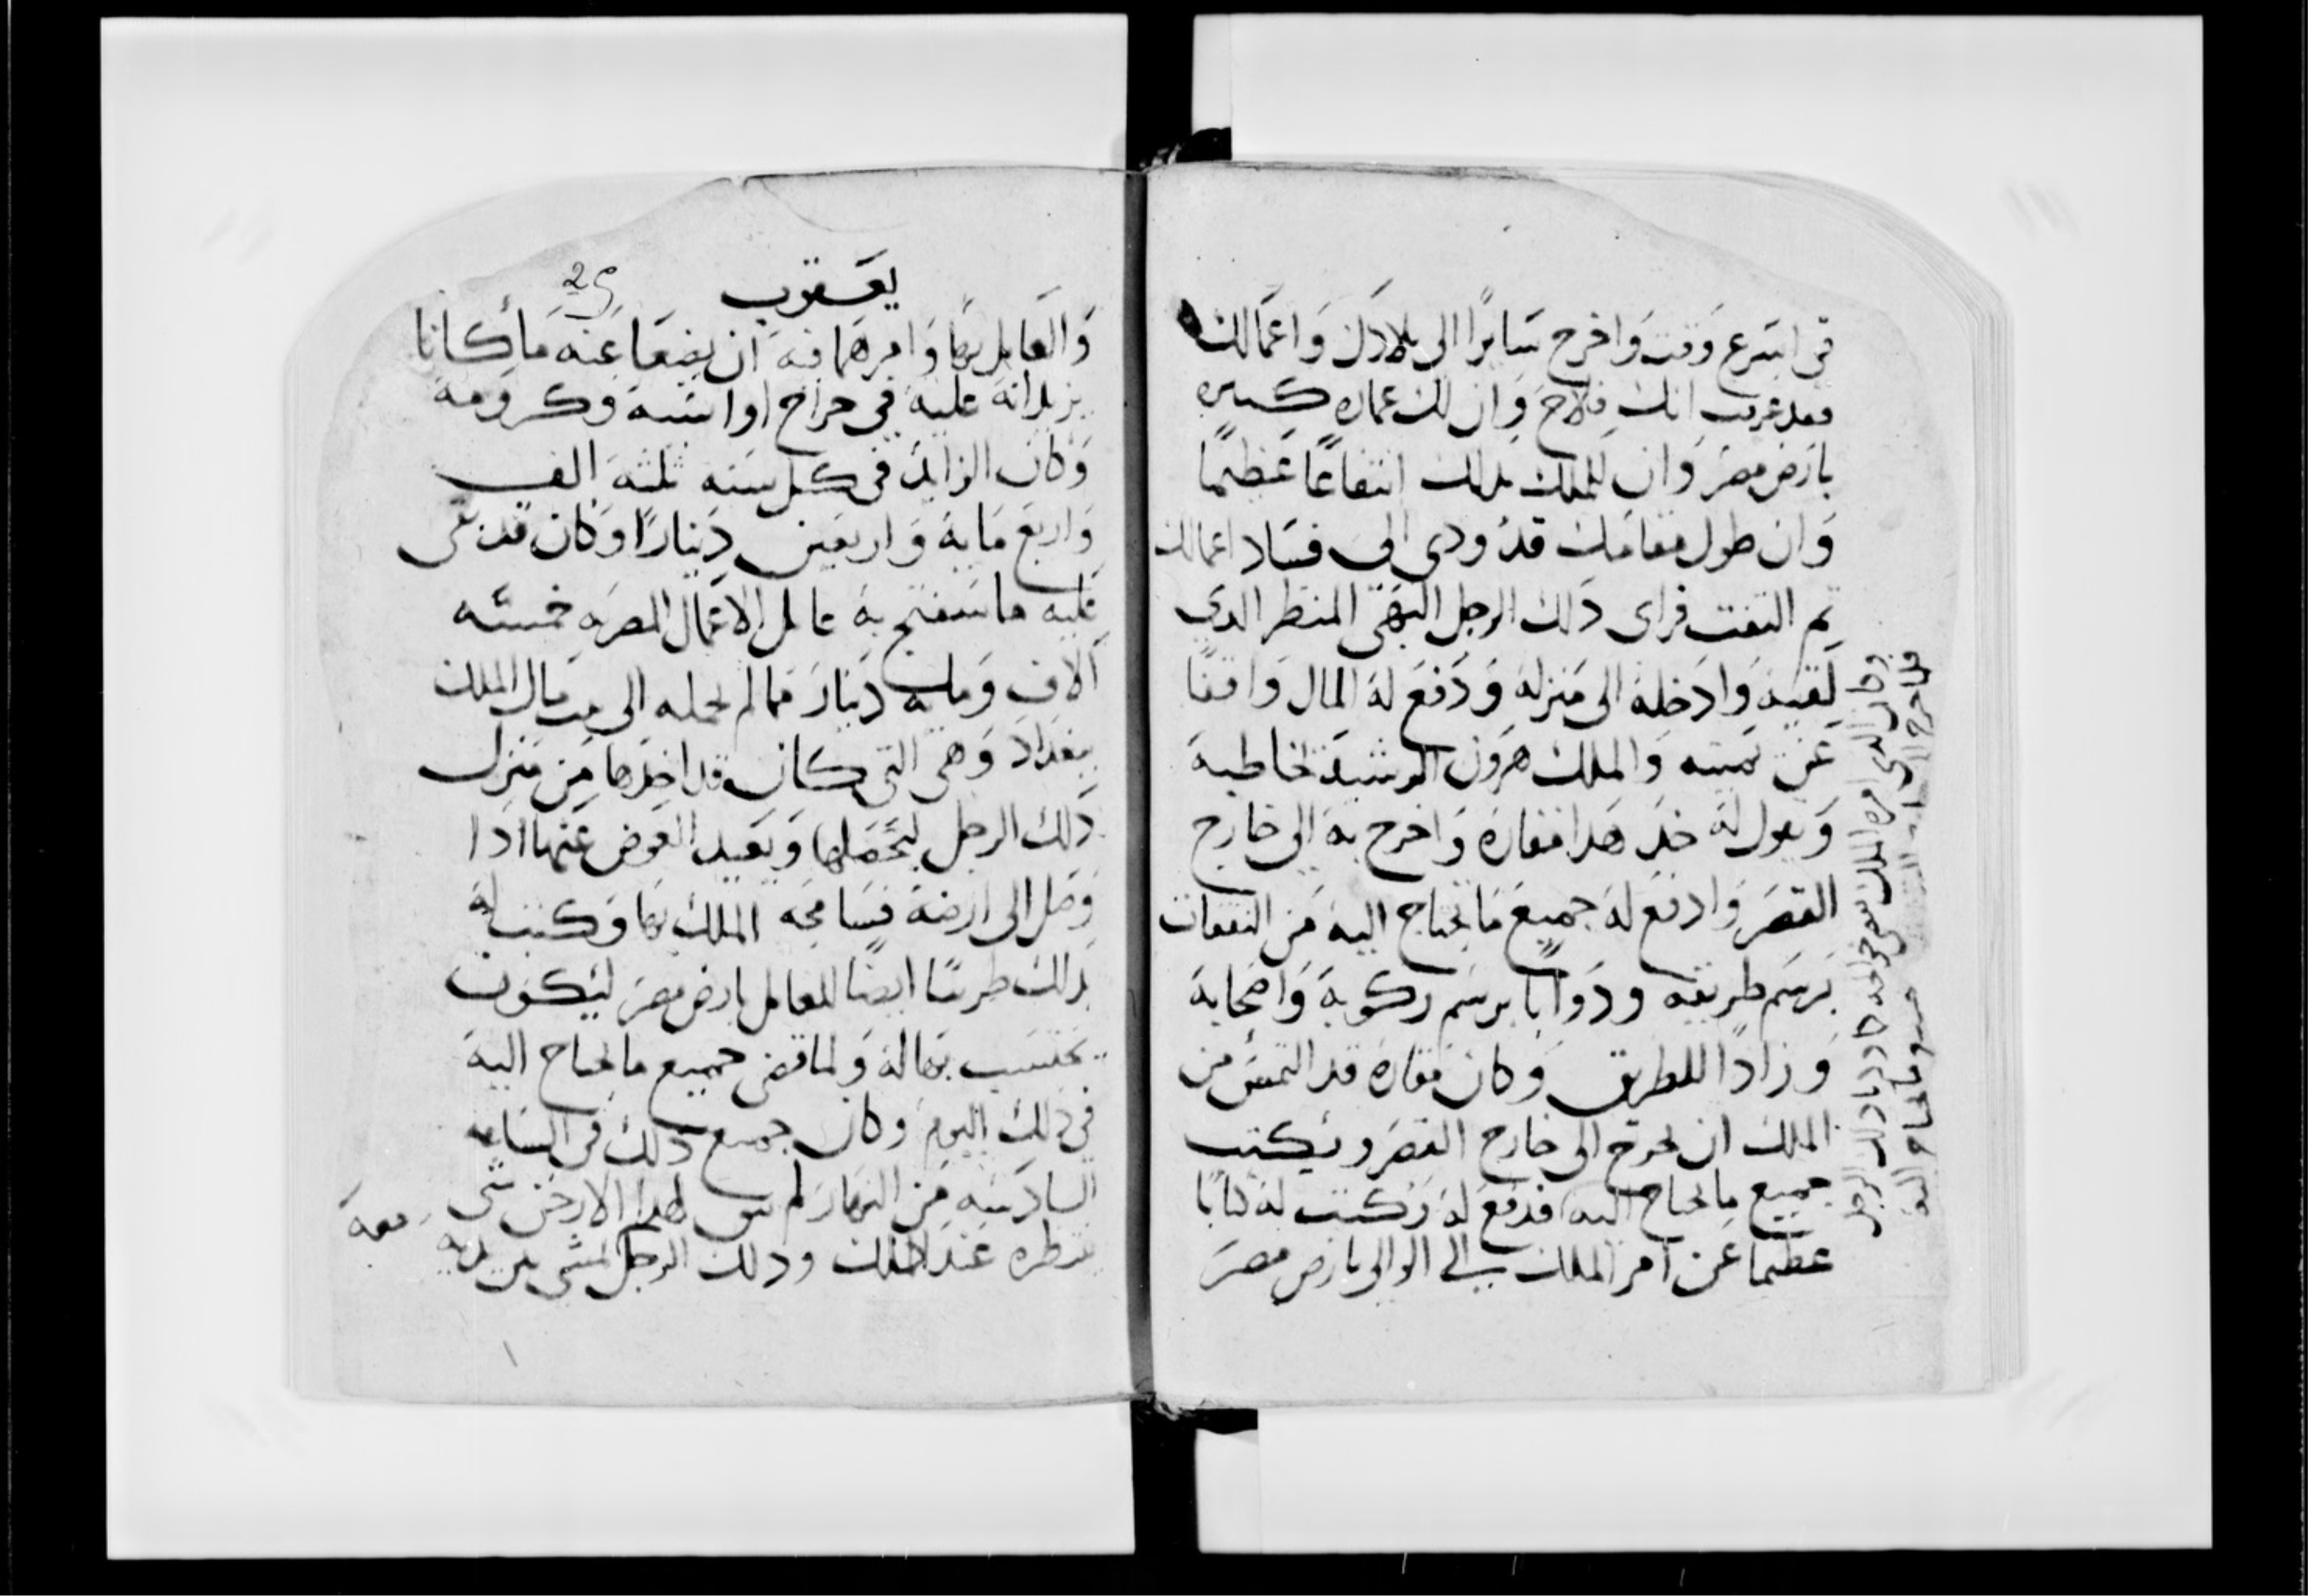 في اسرع وقت واخرج سايرًا الى بلادك واعمالك
فقد عرفت انك فلاح وان لك عماره كبيره
بارض مصر وان للملك بذلك انتفاعًا عظيمًا
وان طول مقامك قد ودى الى فساد اعمالك
ثم التفت فراى ذلك الرجل البهى المنظر الدي
لقيه وادخله الى منزله ودفع له المال واقفًا
عن يمينه والملك هرون الرشيد يخاطبه
ويقول له خد هدا مقاره واخرج به الى خارج
القصر وادفع له جميع ما يحتاج اليه من النفقات
برسم طريقه ودوابًا برسم ركوبه واصحابه
وزادًا للطريق وكان مقاره قد التمس من
الملك ان يخرج الى خارج القصر ويكتب
جميع ما يحتاج اليه فدفع له وكتب له كتابًا
عظيما عن امر الملك الى الوالى بارض مصر
وكان الدي امره الملك
دلك الرجل
وما يحتاج اليه
يعقوب
25
والعامل بها وامرهما فيه ان يضعا عنه ما كانا
يزيدانه عليه في خراج اواسيه وكرومه
وكان الزايد في كل سنه ثلثه الف
واربع مايه واربعين دينارًا وكان قد بقى
عليه ما ستفتح به عامل الاعمال المصريه خمسه
الاف ومايه دينار مما لم يحمله الى بيت مال الملك
ببغداد وهى التى كان قد اخدها من منزل
دلك الرجل ليحملها ويعيد العوض عنها ادا
وصل الى ارضه فسامحه الملك بها وكتب له
بدلك طرسًا ايضًا للعامل بارض مصر ليكون
يحتسب بها له ولما قضى جميع ما يحتاج اليه
في ذلك اليوم وكان جميع دلك في الساعه
السادسه من النهار لم يبق لهدا الارخن شى
ينتظره عند الملك ودلك الرجل يمشى بين يديه
معه